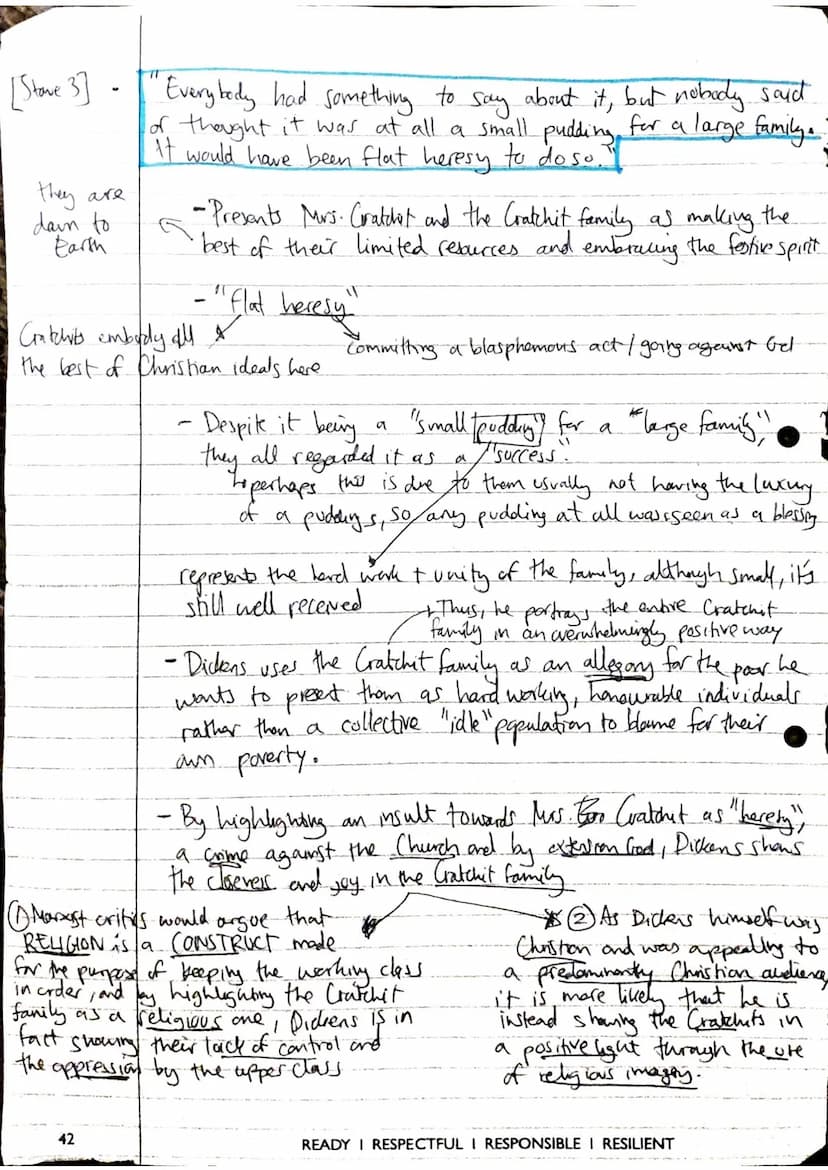 [Stave 3] - "Everybody had something to say about it, but nobody said
or thought it was at all a small pudding for a large family.
It would have been flat heresy to do so."
they are
down to
Earth
- Presents Mrs. Cratchit and the Cratchit family as making the
best of their limited resources and embracing the festive spirit
- "flat heresy"
Cratchits embody all
the best of Christian ideals here
Committing a blasphemous act / going against God
- Despite it being a "small pudding" for a "large family",
they all regarded it as a "success".
perhaps this is due to them usually not having the luxury
of a puddings, so any pudding at all was seen as a blessing
represents the hard work + unity of the family, although small, it's
still well received
Thus, he portrays the entire Cratchit
family in an overwhelmingly positive way
- Dickens uses the Cratchit family as an allegory for the poor he
wants to present them as hard working, honourable individuals
rather than a collective "idle" population to blame for their
own poverty.
- By highlighting an insult towards Mrs. Cratchit as "heresy",
a crime against the Church and by extension God, Dickens shows
the closeness and joy in the Cratchit family
① Marxist critics would argue that
RELIGION is a CONSTRUCT made
for the purpose of keeping the working class
in order, and by highlighting the Cratchit
family as a religious one, Dickens is in
fact showing their lack of control and
the oppression by the upper class
② As Dickens himself was
Christian and was appealing to
a predominantly Christian audience,
it is more likely that he is
instead showing the Cratchits in
a positive light through the use
of religious imagery.
42
READY | RESPECTFUL | RESPONSIBLE | RESILIENT